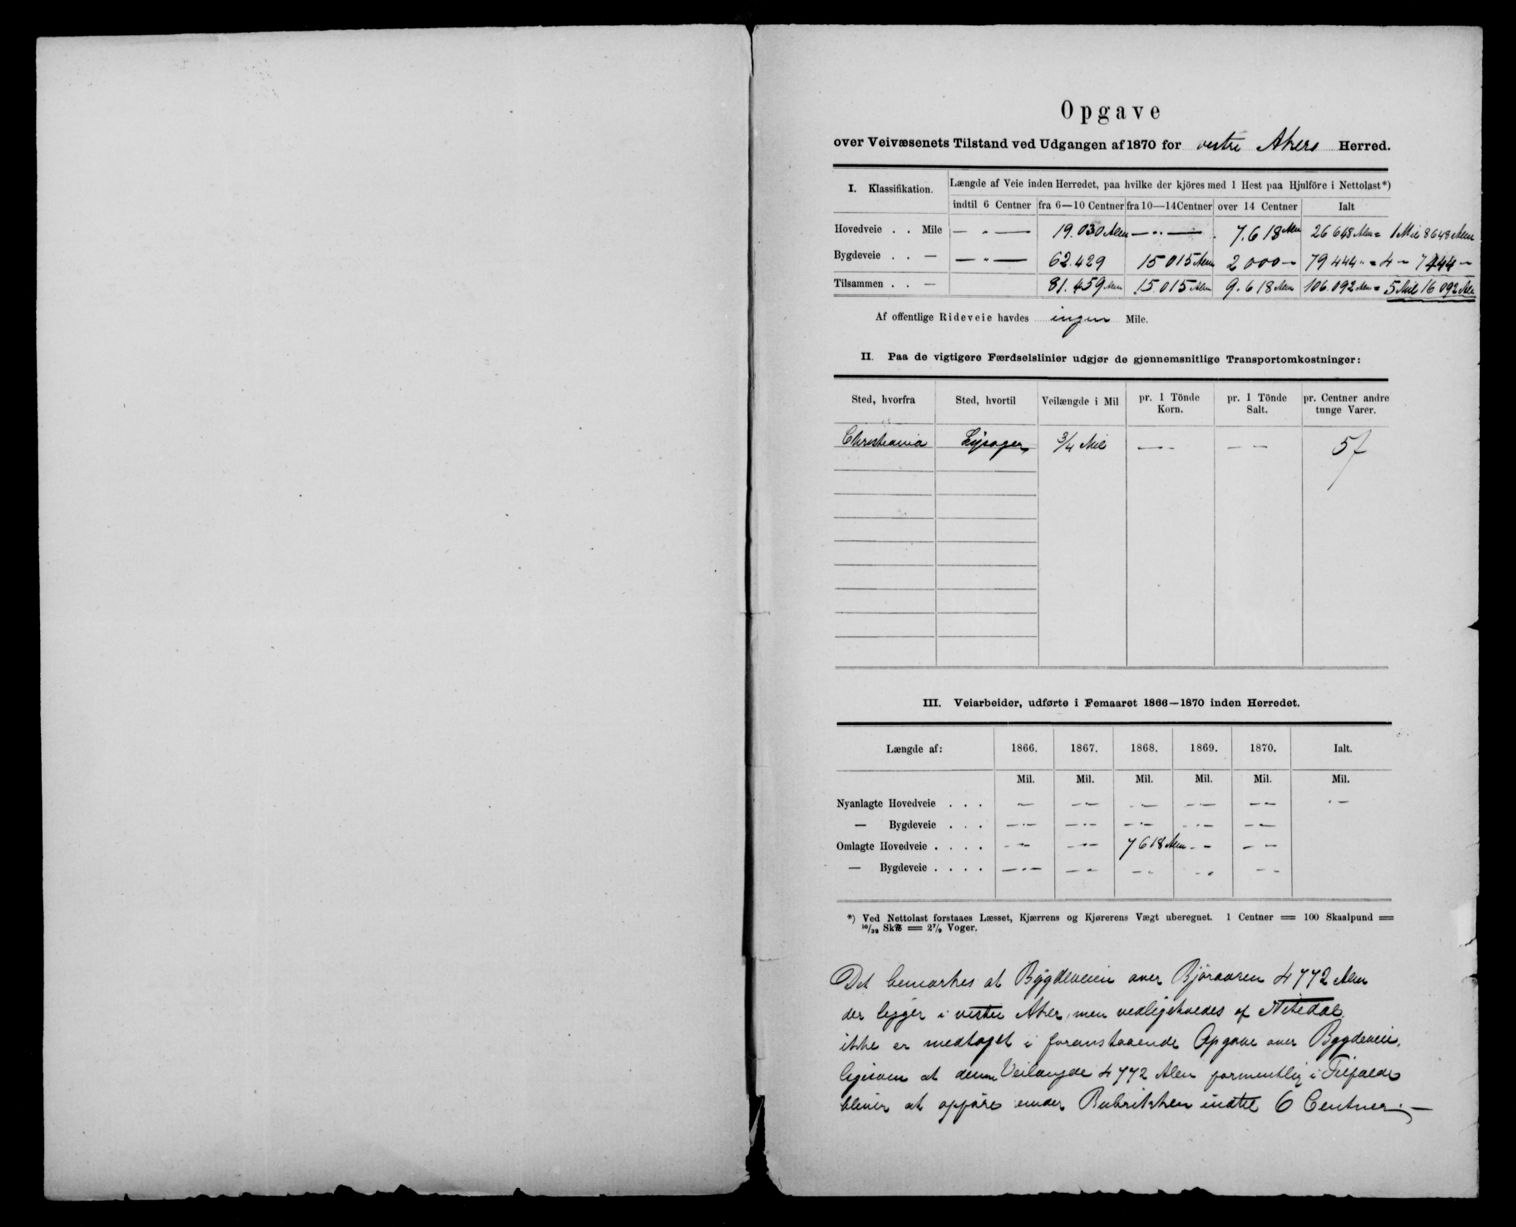 Opgave
over Veivæsenets Tilstand ved Udgangen af 1870 for vestre Akers Herred.
I. Klassifikation. Længde af Veie inden Herredet, paa hvilke der kjöres med 1 Hest paa Hjulföre i Nettolast*)
indtil 6 Centner fra 6—10 Centner fra 10—14 Centner over 14 Centner Ialt
Hovedveie . . Mile — " — 19.030 Alen — " — 7.618 Alen 26648 Alen = 1 Mil 8648 Alen
Bygdeveie . . — — " — 62.429 15015 Alen 2000 — 79444 " = 4 — 7444 —
Tilsammen . . — 81.459 Alen 15.015 Alen 9.618 Alen 106.092 Alen = 5 Mil 16092 Alen
Af offentlige Rideveie havdes ingen Mile.
II. Paa de vigtigere Færdselslinier udgjør de gjennemsnitlige Transportomkostninger:
Sted, hvorfra Sted, hvortil Veilængde i Mil pr. 1 Tönde Korn. pr. 1 Tönde Salt. pr. Centner andre tunge Varer.
Christiania Lysager 3/4 Mil — — — — 5
III. Veiarbeider, udførte i Femaaret 1866—1870 inden Herredet.
Længde af: 1866. 1867. 1868. 1869. 1870. Ialt.
Mil. Mil. Mil. Mil. Mil. Mil.
Nyanlagte Hovedveie . . .
— Bygdeveie . . .
Omlagte Hovedveie . . . . 7618 Alen
— Bygdeveie . . . .
*) Ved Nettolast forstaaes Læsset, Kjærrens og Kjørerens Vægt uberegnet. 1 Centner = 100 Skaalpund =
10/32 Sk℔ = 2 7/9 Voger.
Det bemærkes at Bygdeveien over 4772 Alen
der ligger i vestre Aker, men vedligeholdes af Nitedal
ikke er medtaget i foranstaaende Opgave over Bygdeveie,
ligesom at denne Veilængde 4772 Alen formentlig i Tilfælde
bliver at opføre under Rubrikken indtil 6 Centner. —